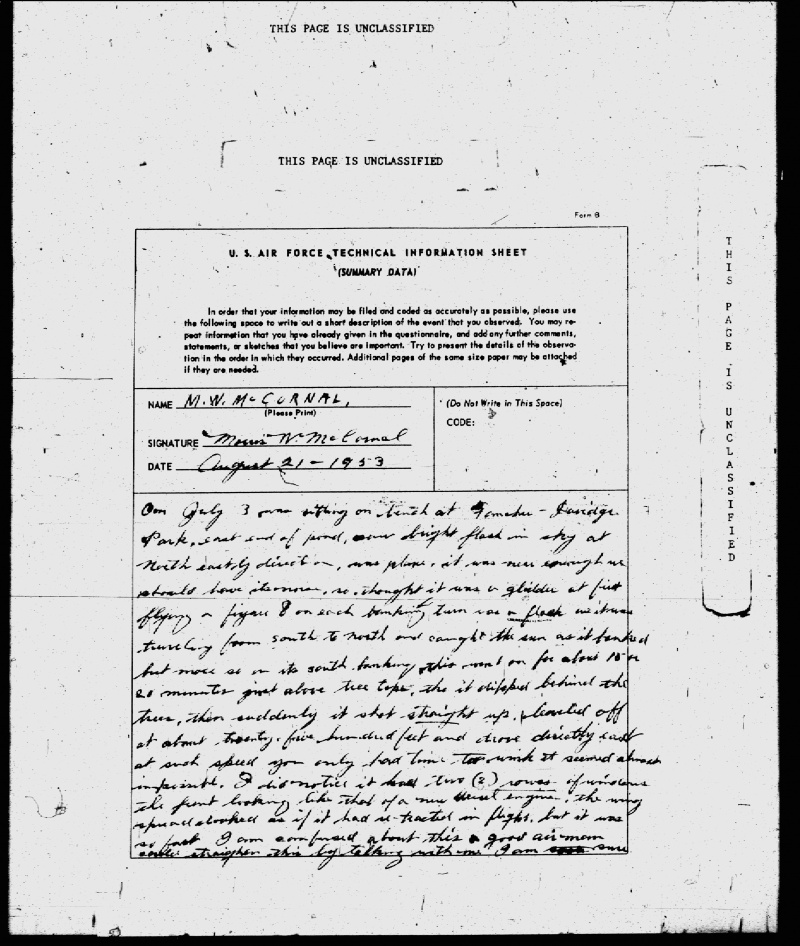 THIS PAGE IS UNCLASSIFIED
THIS PAGE IS UNCLASSIFIED
Form B
U. S. AIR FORCE TECHNICAL INFORMATION SHEET
(SUMMARY DATA)
In order that your information may be filed and coded as accurately as possible, please use
the following space to write out a short description of the event that you observed. You may re-
peat information that you have already given in the questionnaire, and add any further comments,
statements, or sketches that you believe are important. Try to present the details of the observa-
tion in the order in which they occurred. Additional pages of the same size paper may be attached
if they are needed.
NAME M. W. McCORNAL,
(Please Print)
(Do Not Write in This Space)
CODE:
SIGNATURE W. McCornal
DATE August 21 - 1953
On July 3 was sitting on bench at
Park, east end of pond, saw bright flash in sky at
North direction, was plane, it was near enough we
should have, so, thought it was a glider at first
flying a figure 8 on each banking turn was a flash as it was
traveling from south to north and caught the sun as it banked
but more so on its south banking, this went on for about 15 or
20 minutes just above tree tops, the it dipped behind the
trees, then suddenly it shot straight up, leveled off
at about twenty five hundred feet and drove directly east
at such speed you only had time to wink it seemed almost
impossible. I did notice it had two (2) rows of windows
the front looking like that of a new diesel engine, the wing
spread looked as if it had retracted in flight, but it was
so fast I am confused about this a good airman
straighten this by talking with me I am sure
THIS PAGE IS UNCLASSIFIED